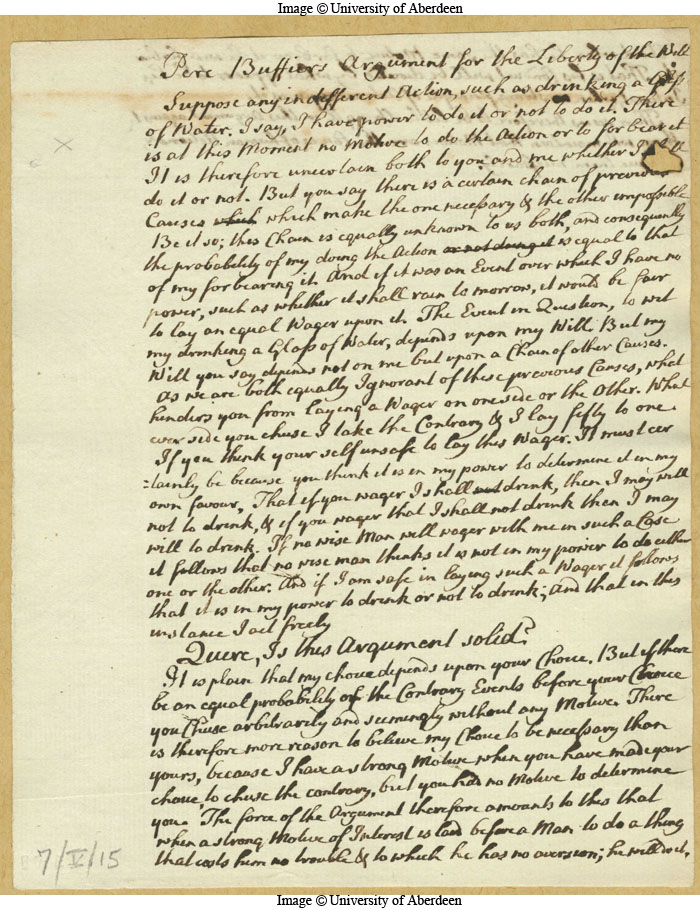 Image © University of Aberdeen
Pere Buffiers Argument for the Liberty of the Will
Suppose any indefferent Action, such as drinking a Glass
of Water. I say, I have power to do it or not to do it. There
is at this Moment no Motive to do the Action or to forbear it
It is therefore uncertain both to you and me whether I
do it or not. But you say there is a certain chain of previous
Causes which which make the one necessary & the other impossible
Be it so; this Chain is equally unknown to us both, and consequently
the probability of my doing the Action or not doing it is equal to that
of my forbearing it. And if it was an Event over which I have no
power, such as whether it shall rain to morrow, it would be fair
to lay an equal Wager upon it. The Event in Question, to wit
my drinking a Glass of Water, depends upon my Will. But my
Will you say depends not on me but upon a Chain of other Causes.
As we are both equally Ignorant of these previous Causes, what
hinders you from laying a Wager on one side or the Other. What
ever side you chuse I take the Contrary & I lay fifty to one.
If you think your self unsafe to lay this Wager. It must cer
=tainly be because you think it is in my power to determine it in my
own favour, That if you wager I shall not drink, then I may will
not to drink, & if you wager that I shall not drink then I may
will to drink. If no wise Man will wager with me in such a Case
it follows that no wise man thinks it is not in my power to do either
one or the other. And if I am safe in laying such a Wager it follows
that it is in my power to drink or not to drink; and that in this
instance I act freely
Quere, Is this Argument solid?
It is plain that my choice depends upon your Choice, But if there
be an equal probability of the Contrary Events before your Choice
you Chuse arbitrarily and seemingly without any Motive. There
is therefore more reason to believe my Choice to be necessary than
yours, because I have a strong Motive when you have made your
choice, to chuse the contrary, but you had no Motive to determine
you. The force of the Argument therefore amounts to this that
when a strong Motive of Interest is laid before a Man to do a thing
that costs him no trouble & to which he has no aversion; he will do it,
7/V/15
Image © University of Aberdeen